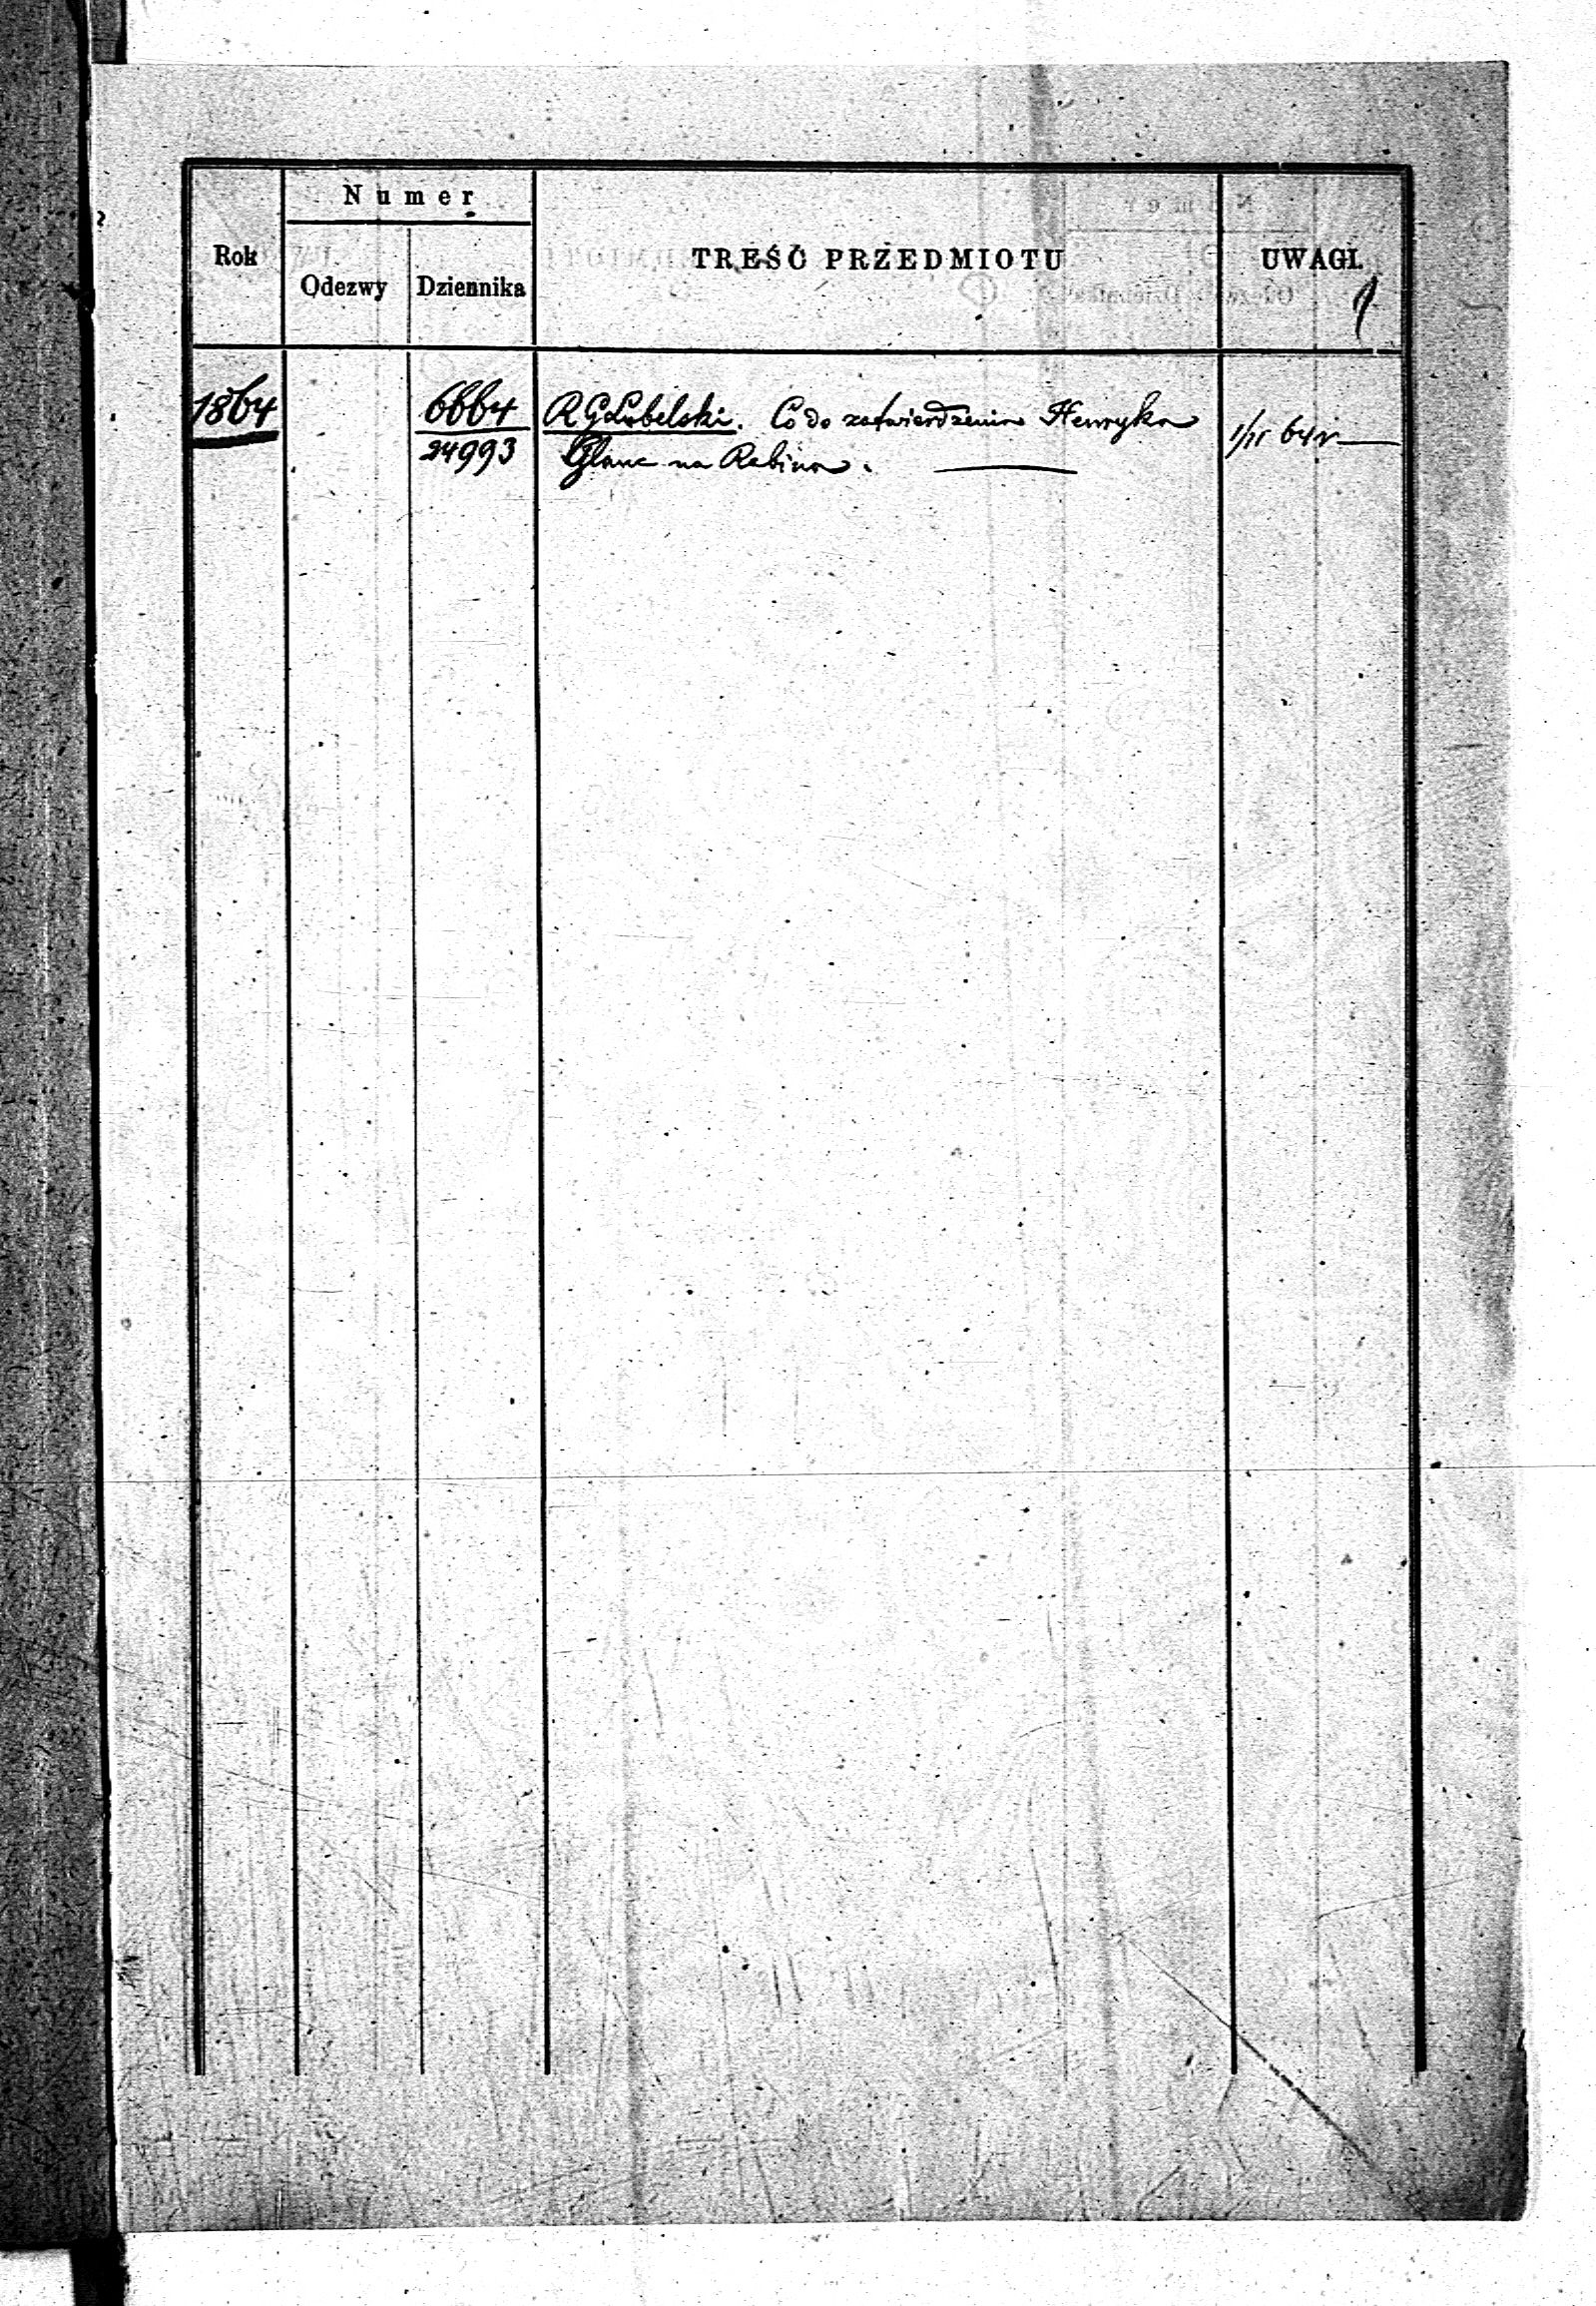 Numer
Rok Odezwy Dziennika TREŚĆ PRZEDMIOTU UWAGI.
1864 6664 R G Lubelski. Co do zatwierdzenia Henryka
24993 Glanc na Rabina. 1/11 64 r